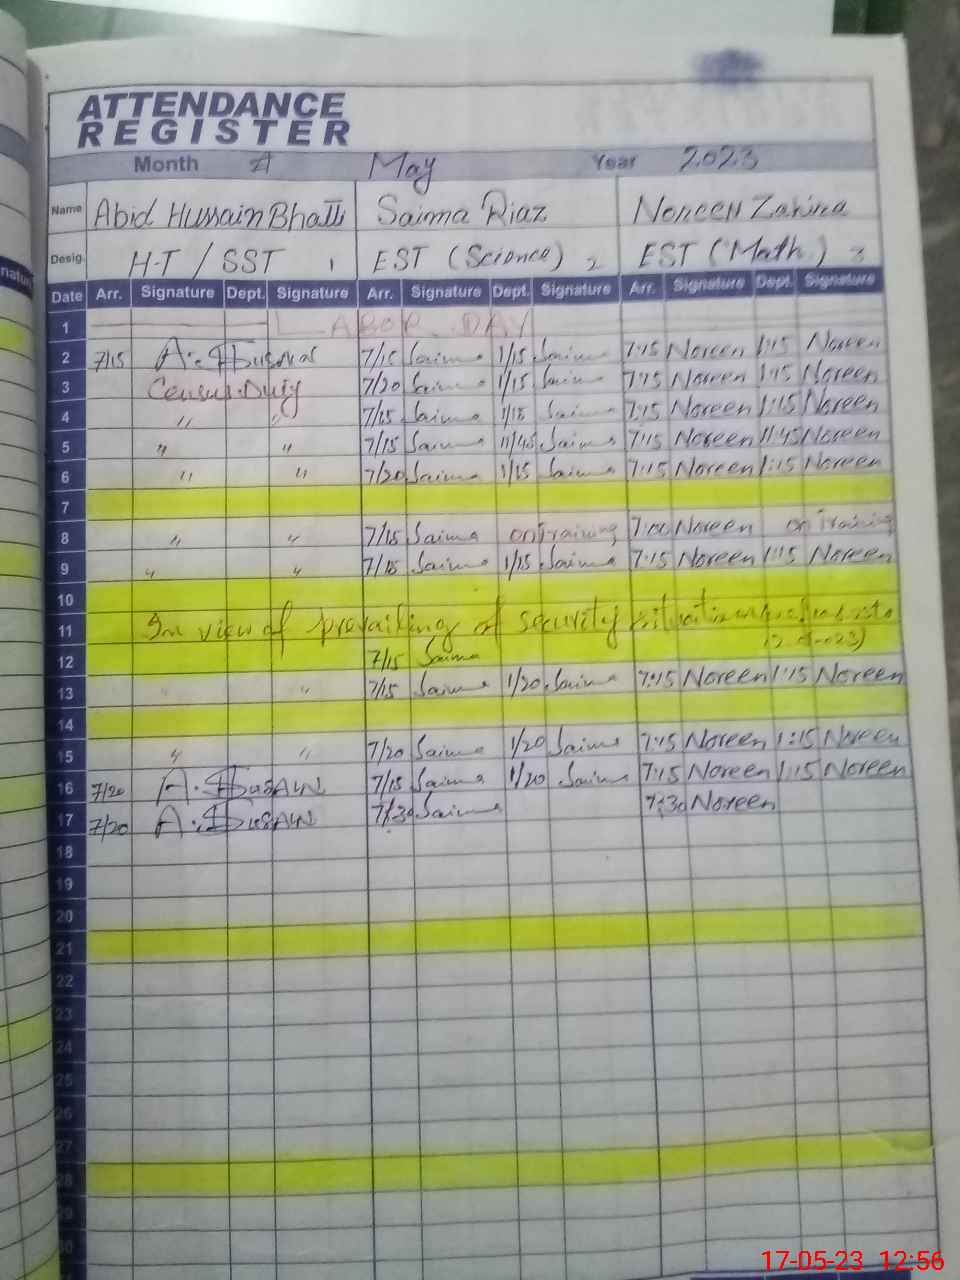 ATTENDANCE
REGISTER
Month May Year 2023
Name Abid Hussain Bhatti Saima Riaz Noreen Zahira
Desig. H-T / SST 1 EST (Science) 2 EST (Math) 3
Date Arr. Signature Dept. Signature Arr. Signature Dept. Signature Arr. Signature Dept. Signature
1 LABOR DAY
2 7/15 7/15 Saima 1/15 Saima 7:15 Noreen 1:15 Noreen
3 Census Duty 7/20 Saima 1/15 Saima 7:15 Noreen 1:15 Noreen
4 " " 7/15 Saima 1/15 Saima 7:15 Noreen 1:15 Noreen
5 " " 7/15 Saima 11/45 Saima 7:15 Noreen 11:45 Noreen
6 " " 7/20 Saima 1/15 Saima 7:15 Noreen 1:15 Noreen
7
8 " " 7/15 Saima on Training 7:00 Noreen on Training
9 " " 7/15 Saima 1/15 Saima 7:15 Noreen 1:15 Noreen
10
11 In view of prevailing of security situation
12 7/15 Saima
13 " " 7/15 Saima 1/20 Saima 7:15 Noreen 1:15 Noreen
14
15 " " 7/20 Saima 1/20 Saima 7:15 Noreen 1:15 Noreen
16 7/20 7/15 Saima 1/20 Saima 7:15 Noreen 1:15 Noreen
17 7/20 7/30 Saima 7:30 Noreen
18
19
20
21
22
23
24
25
26
27
28
29
30
17-05-23 12:56